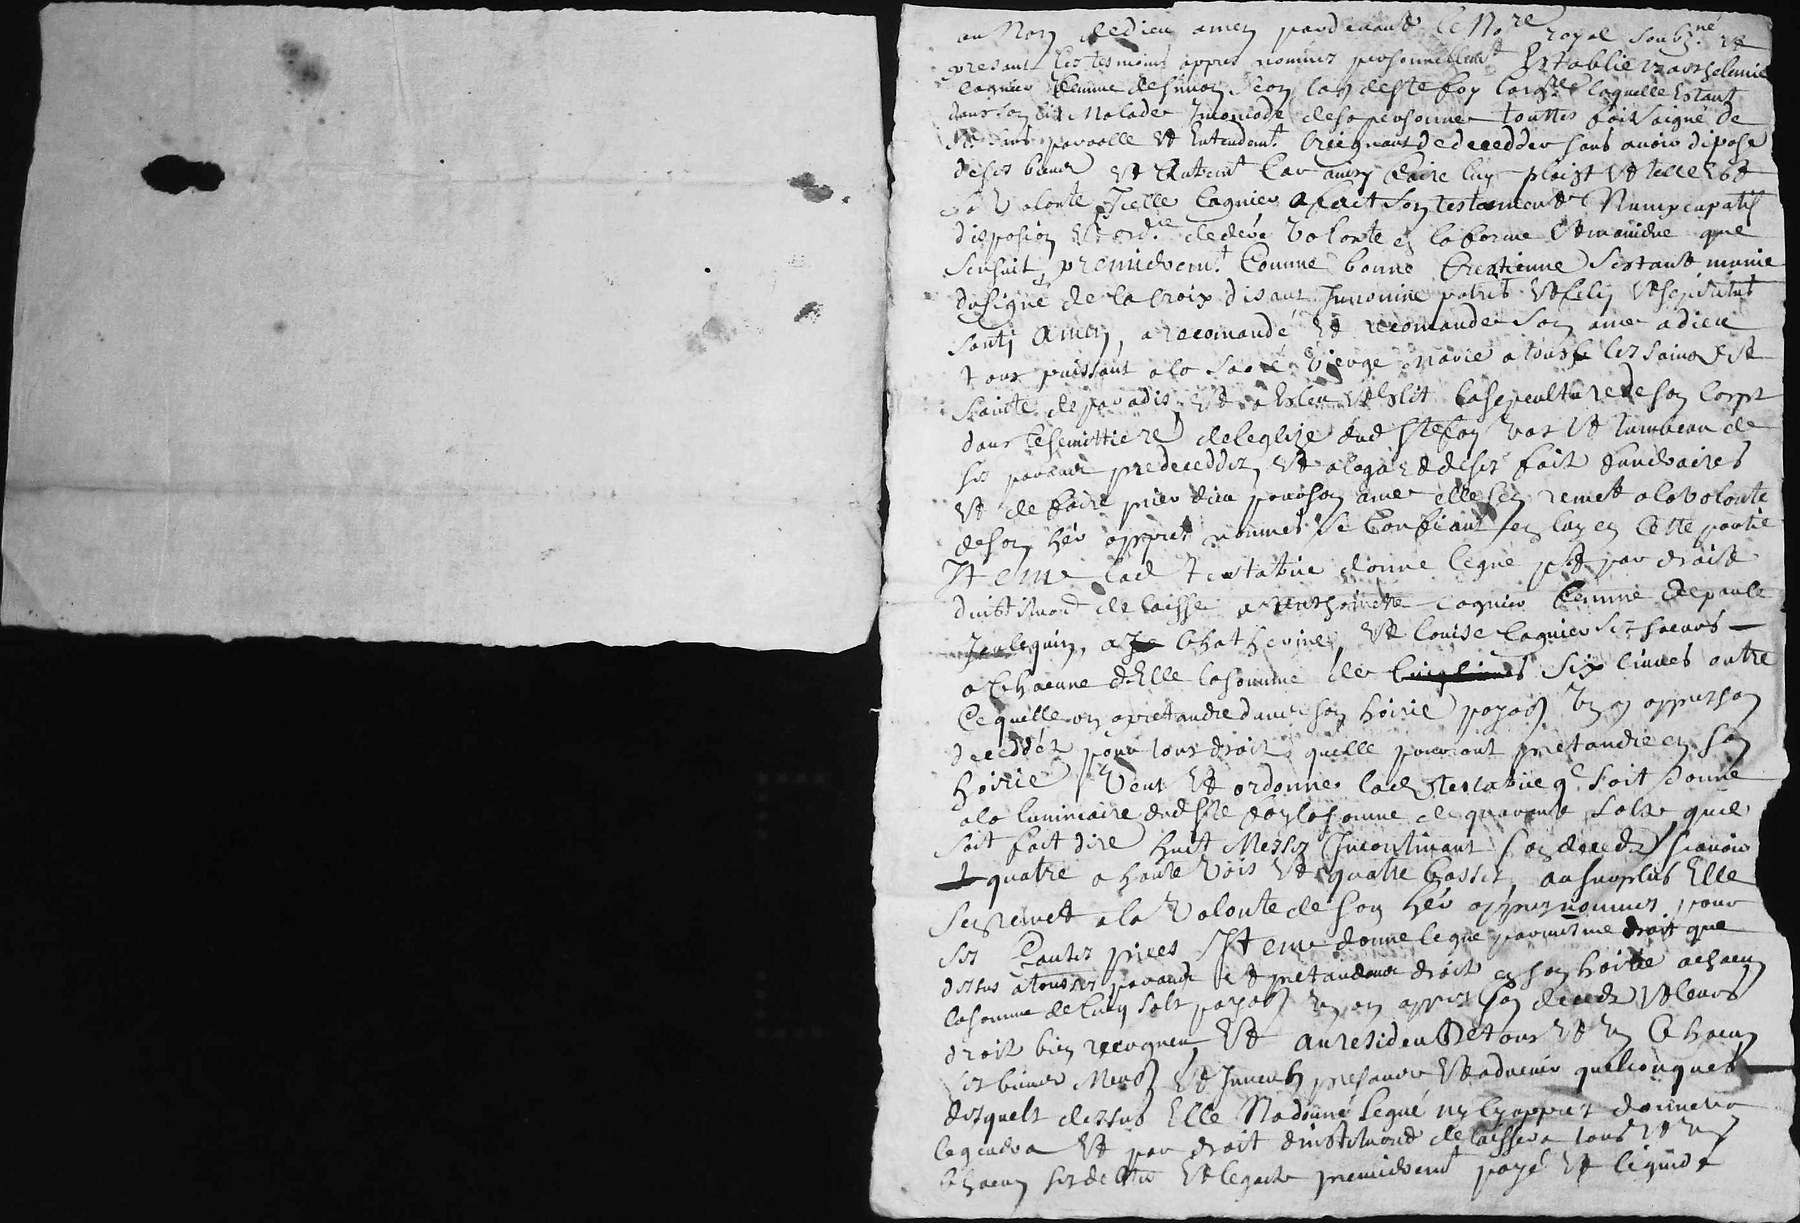 au Nom de dieu amen pardevant le No.re royal soubz.né et
presant les tesmoins appres nommes personnellemt Establie
Cagnier femme de simon de ste foy laquelle Estant
dans son lit Malade Incomode de sa personne touttes fois saigne de
parolle et Entendemt. Creignant de decedder sans avoir dispose
de ses biens et car ainsy faire luy plaist et telle Est
sa volonte Icelle Cagnier a fait son testament Nuncupatif
disposion et ord.re de volonte en la forme et maniere que
sensuit, premierem.t Comme bonne Crestienne sestant munie
du signe de la Croix disant In nomine patris et filij et spiritus
santj Amen, a recomandé et recomande son ame a dieu
tout puissant a la sacré vierge marie a tous les saints et
saincte de paradis et a Esleu et Eslit la sepculture de son corps
dans le semittiere de leglize dud ste foy vas et tumbeau de
ses parans predeceddez, et a legard de ses frait funeraires
et de faire prier dieu pour son ame elle sen remet a la volonte
de son her appres nommes se Confiant en luy en Cette partie
Iteme lad testatrie donne legue par droict
dinstituond et laisse a Anthoinette Cagnier femme de paule
Janlequin, a Chatherine, et louise Cagnier ses soeurs
a Chacune delle la somme de six livres outre
Ce quelle on a pretandre dans son hoirie payab un an appres son
deceddés pour tous droit quelle pouroint pretandre en son
hoirie Veut et ordonne lad testatrie q.e soit donné
a la luminaire dud ste foy la somme de quarante sols, quil
soit fait dire huit Messes Incontinant son decedz scavoir
quatre a haute vois et quatre basses, au surplus Elle
sen remet a la volonte de son her appres nommes, pour
ses pies Iteme donne legue par mesme droit que
dessus a tous ses parans et pretandans droit en son hoirie a chacun
la somme de Cinq sols payab un an appres son decedz et leurs
droit bien recogneu, et au resideu de tous et un Chacun
ses biens Meub et Inmeub presans et advenir quelconques
desquels dessus Elle Na donné legué ny Cy appres donnera
leguera et par droit dinstituond delaissera tous et un
Chacun ses debte et legats premieremt payé et liquide